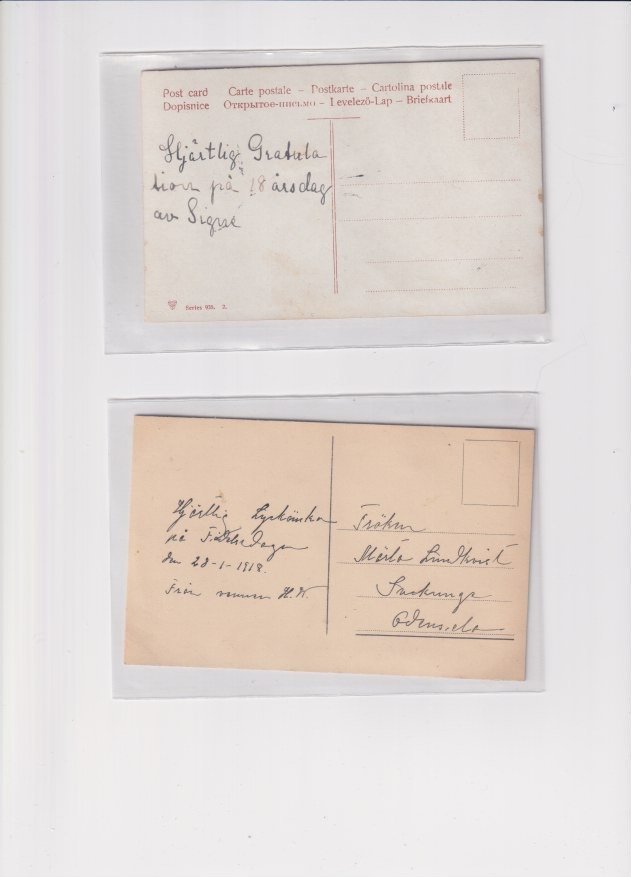 Post card Carte postale – Postkarte – Cartolina postale
Dopisnice Открытое-письмо – Levelező-Lap – Briefkaart
Hjärtlig Gratula
tion på 18 årsdag
av Signe
Series 938. 2.
Hjärtlig Lyckönskan
på Födelsedagen
den 28-1-1918.
Från vännen H.W.
Fröken
Märta Lindkvist
Odensala